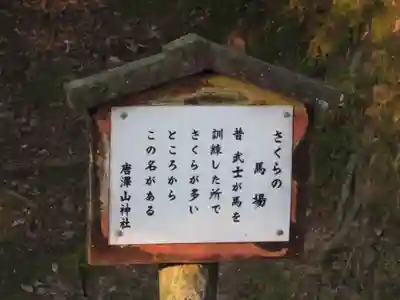 さくらの
馬場
昔武士が馬を
訓練した所で
さくらが多い
ところから
この名がある
唐澤山神社